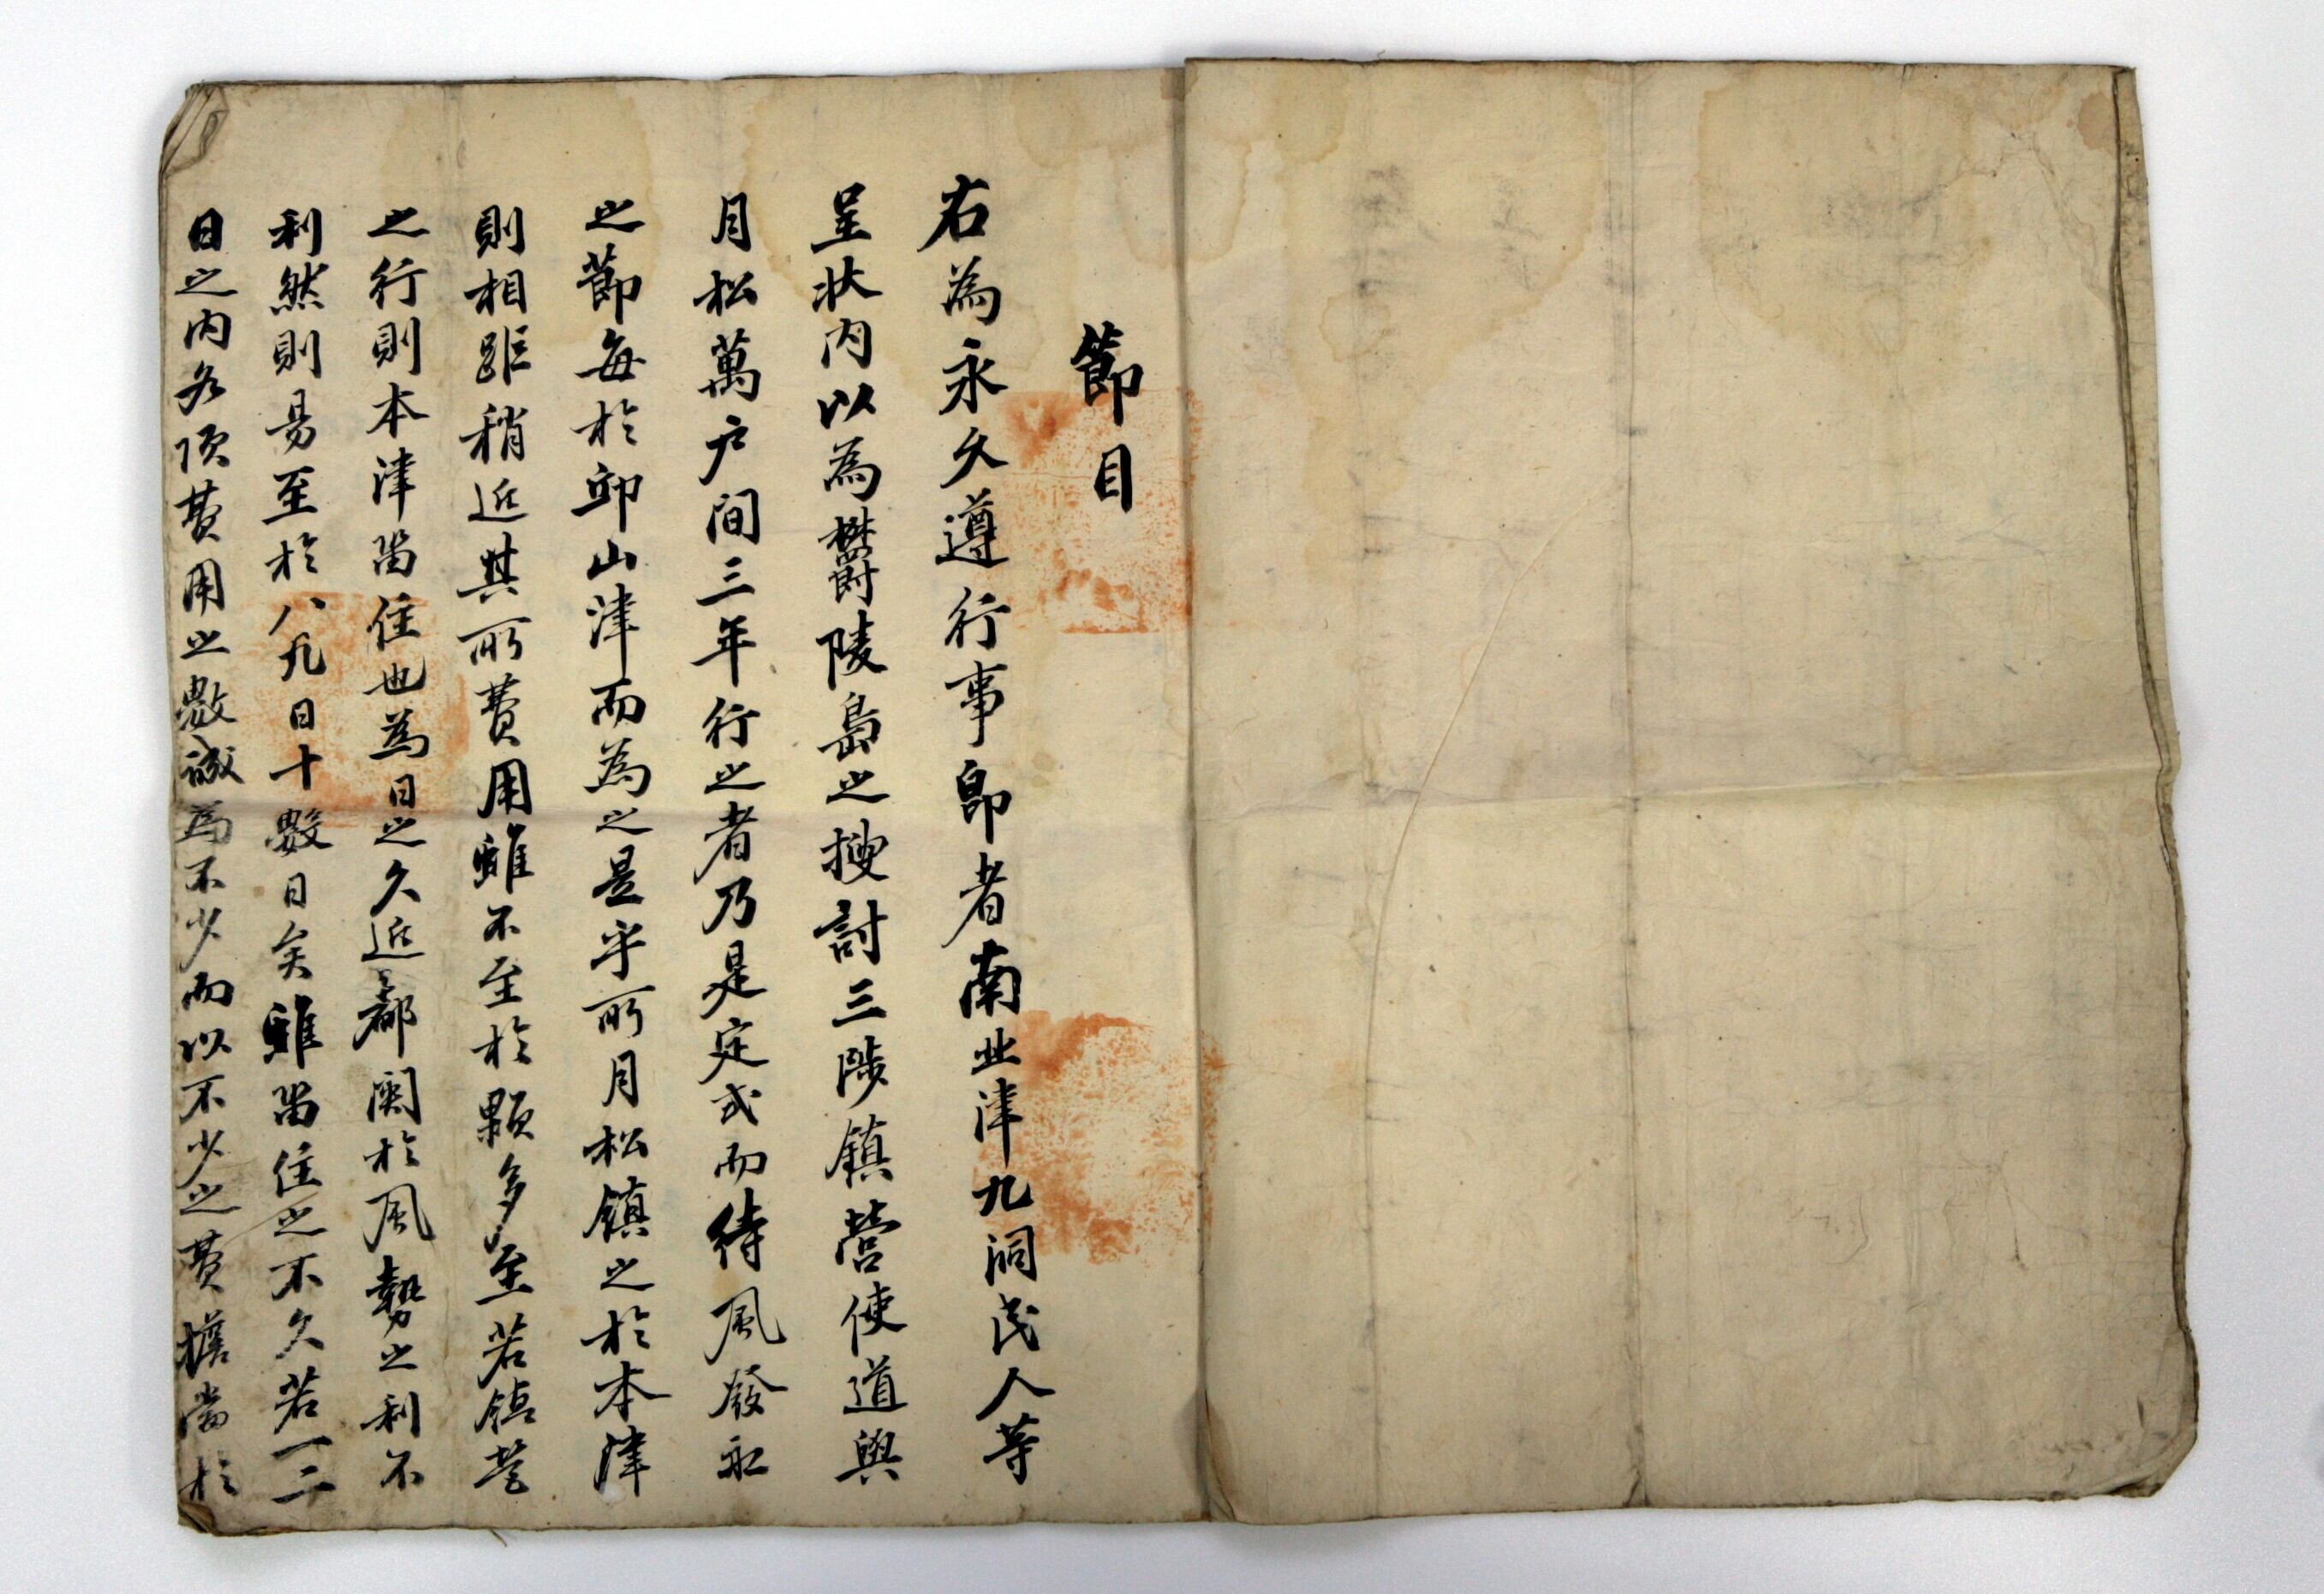 節目
右為永久遵行事卽者南北津九洞民人等
呈狀內以為欝陵島之搜討三陟鎮營使道與
月松萬户間三年行之者乃是定式而待風發船
之節每於邱山津而為之是乎所月松鎮之於本津
則相距稍近其所費用雖不至於顆多至若鎮營
之行則本津留住也為日之久近都關於風勢之利不
利然則昜至於八九日十數日矣雖留住之不久若一二
日之內各項費用之數誠為不少而以不少之費擔當於